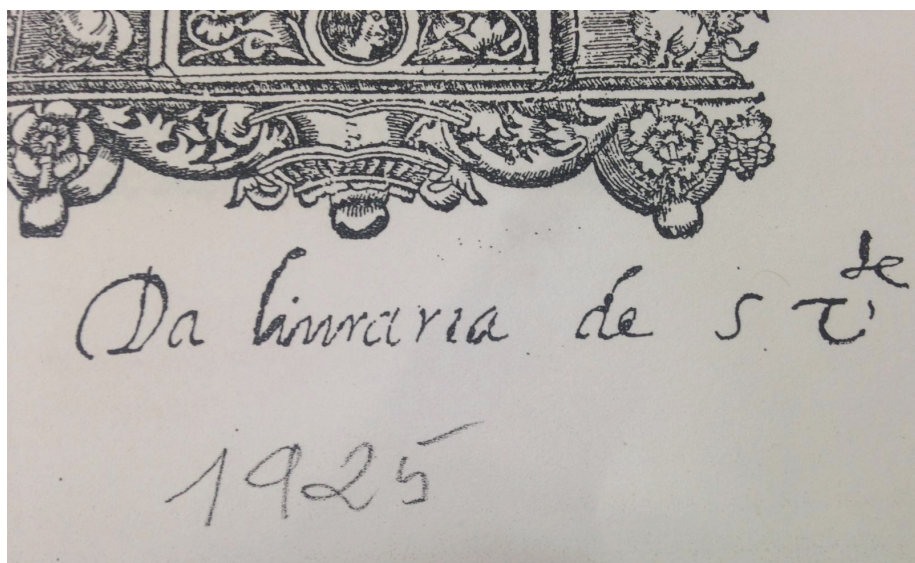 Da liuraria de S V.de
1925